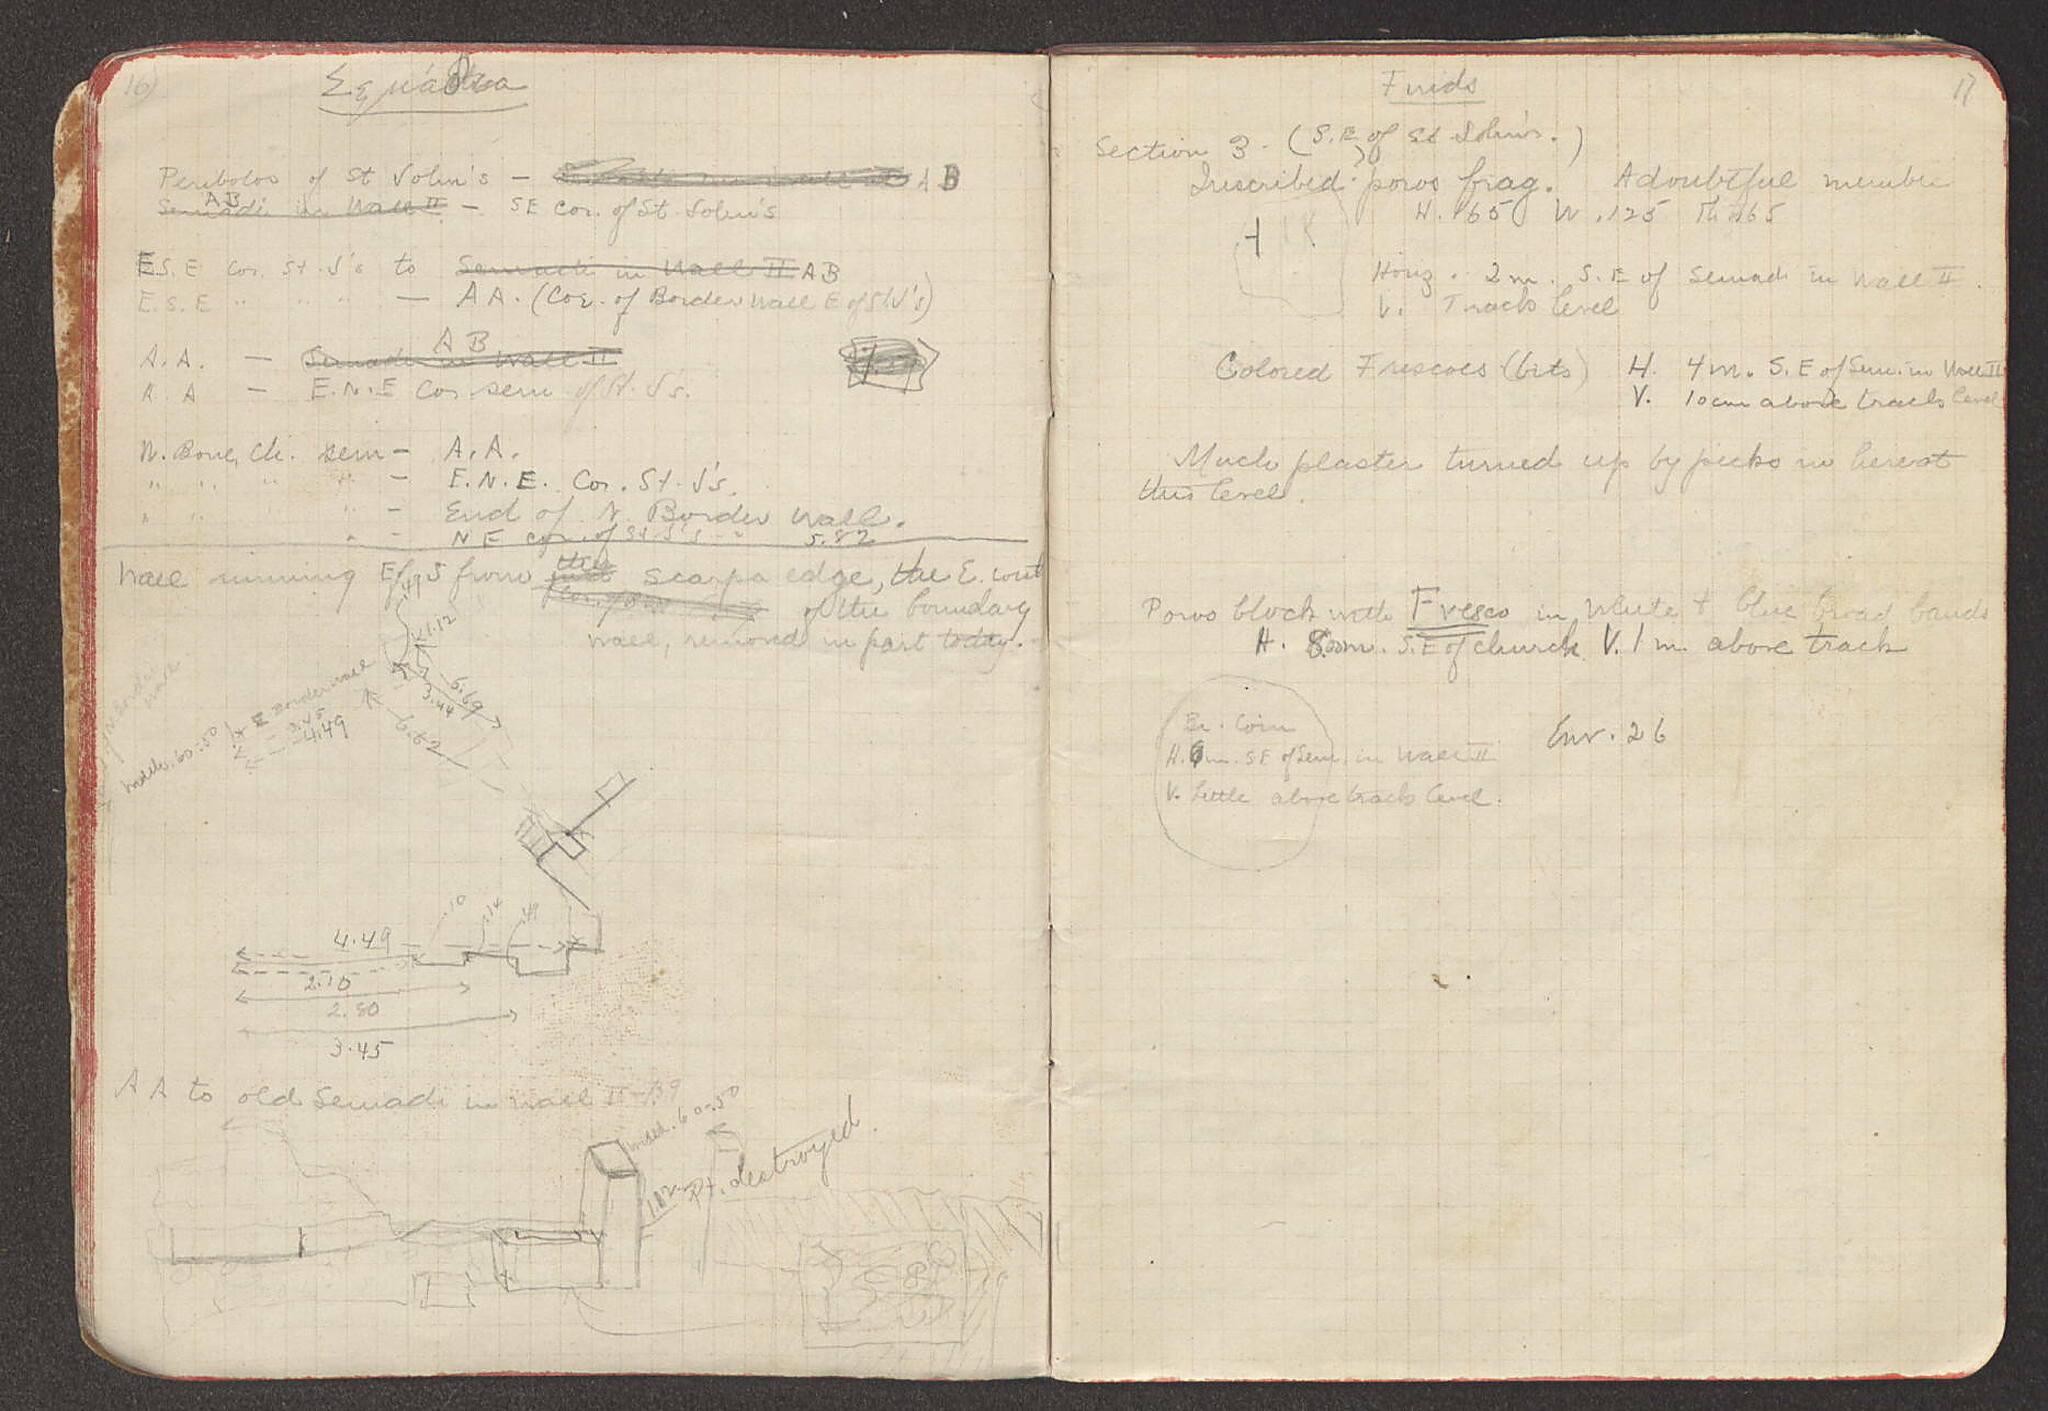 16)
Σημάδια
Peribolos of St John's — A B
AB
Semadi in Wall II — SE cor. of St. John's
E.S.E cor. St. J's to Semadi in Wall II AB
E.S.E " " " — AA. (Cor. of Border wall E of St J's)
A B
A.A. — Semadi in Wall II
A A — E.N.E Cor sem of St. J's.
N. Bone, Ch. sem — A.A.
" " " " — E.N.E. Cor. St. J's.
" " " " — End of N. Border wall.
" — N E cor. of St J's — 5.82
Wall running E of S from the scarpa edge, the E. cont
of the boundary
wall, removed in part today.
.49
1.12
5.69
3.44
6.62
E Border wall
3.45
4.49
width .60-.50
.10
.14
.49
4.49
2.70
2.80
3.45
A A to old Semadi in Wall II — 1.39
width .60-.50
1.82
Pt. destroyed.
17
Finds
Section 3. (S.E of St John's.)
Inscribed poros frag. A doubtful member
H. .165 W .125 Th .165
Horiz. 2m. S.E of Semadi in Wall II.
V. Track level
Colored Frescoes (bits) H. 4m. S.E of Sem. in Wall II
V. 10cm above track level
Much plaster turned up by picks in here at
this level.
Poros block with Fresco in white + blue broad bands
H. 8.00m. S.E of church V. 1 m. above track
Br. Coin
Env. 26
H. 6m. SE of Sem. in Wall II
V. Little above track level.